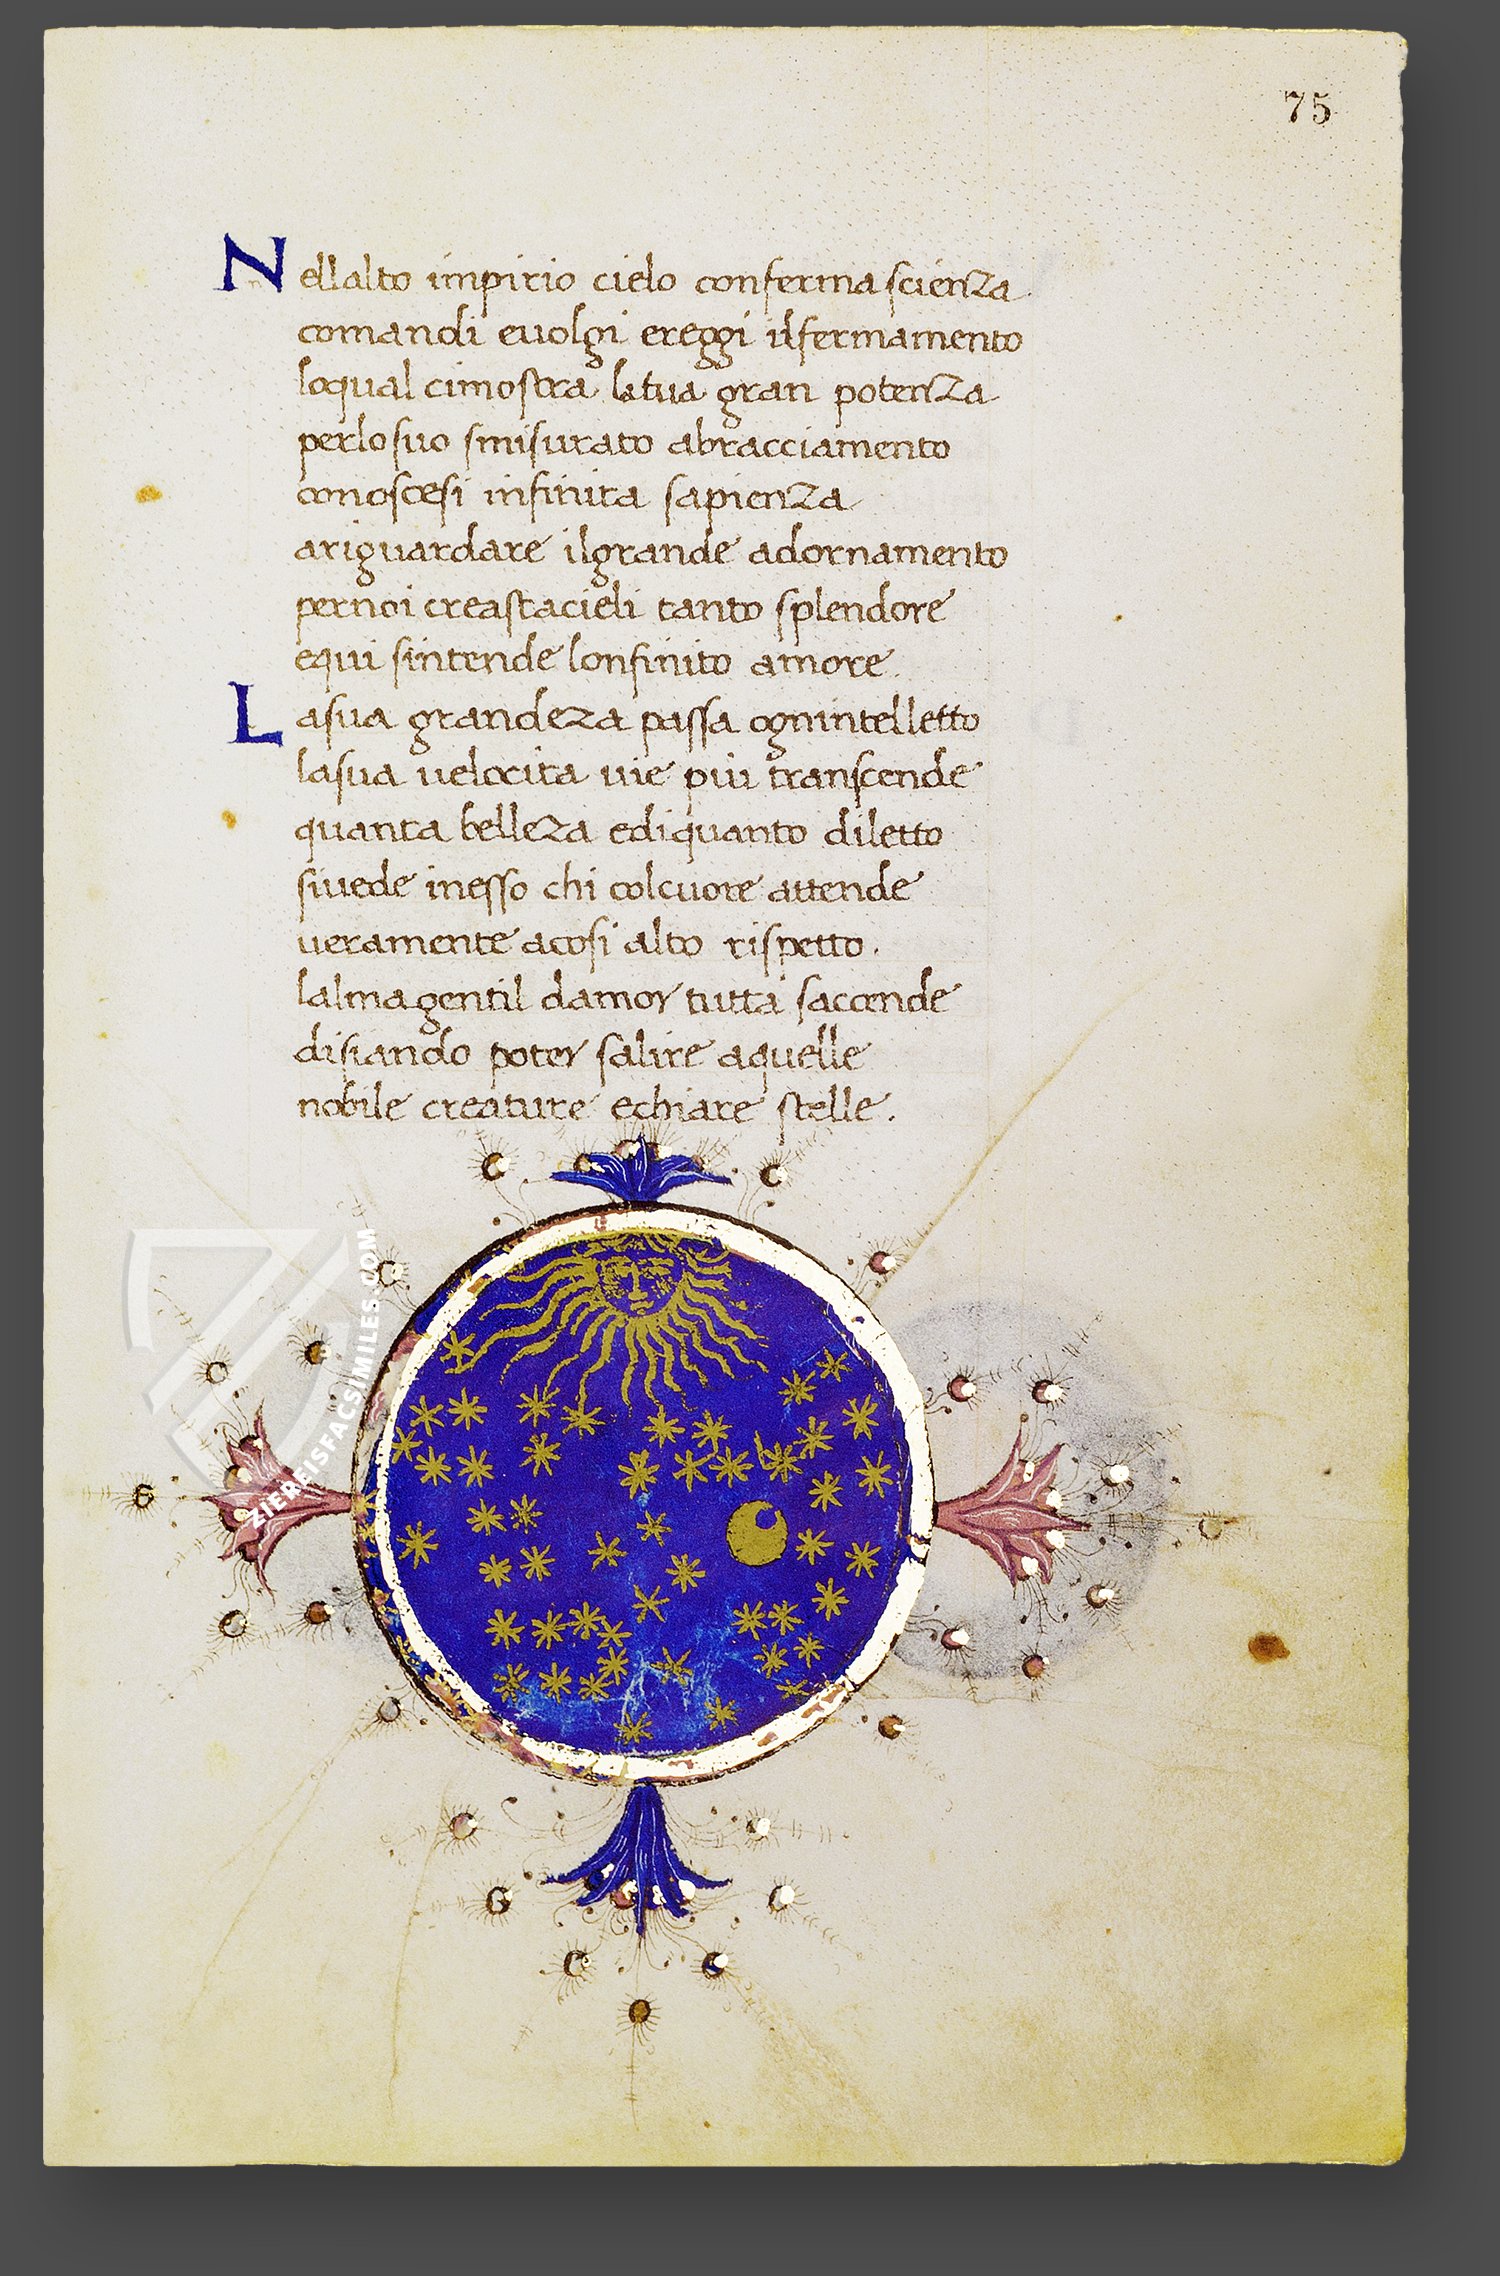 75
Nellalto impirio cielo conferma scienza
comandi euolgi ereggi ilfermamento
loqual cimostra latua gran potenza
perlo suo smisurato abracciamento
conoscesi infinita sapienza
ariguardare ilgrande adornamento
pernoi creastacieli tanto splendore
equi sintende lonfinito amore.
Lasua grandeza passa ognintelletto
lasua uelocita uie piu transcende
quanta belleza ediquanto diletto
siuede inesso chi colcuore attende
ueramente acosi alto rispetto.
lalma gentil damor tutta saccende
disiando poter salire aquelle
nobile creature echiare stelle.
ZIEREISFACSIMILES.COM